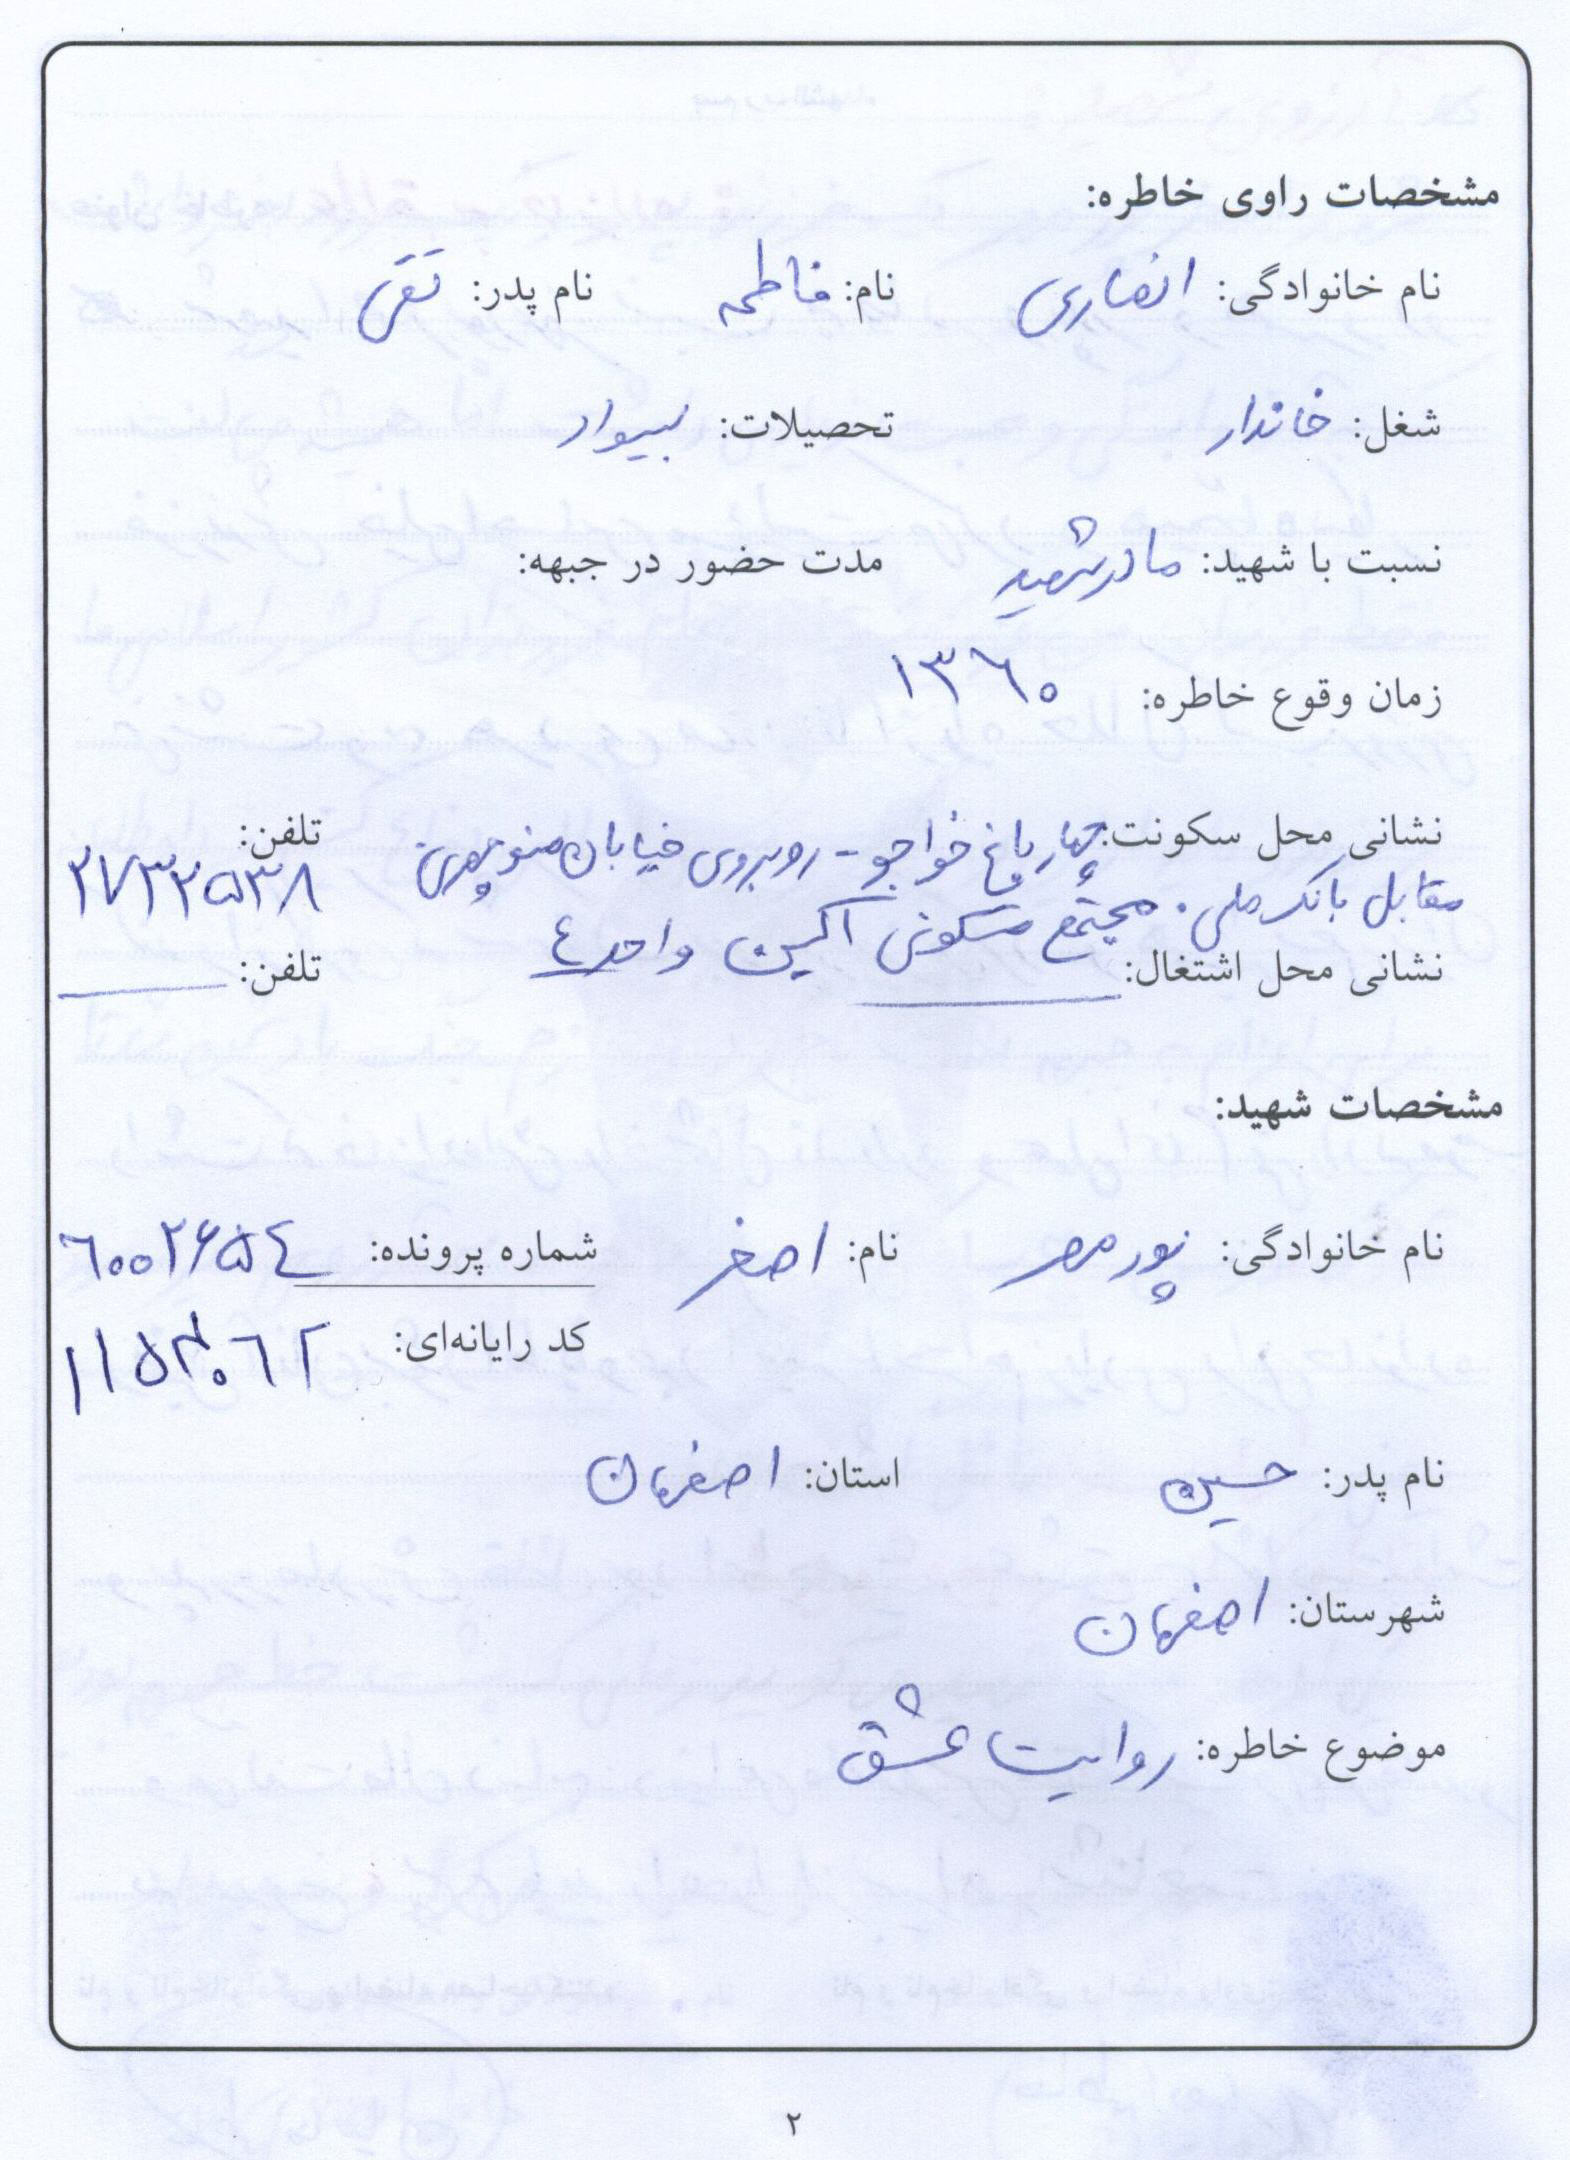 مشخصات راوی خاطره:
نام خانوادگی: انصاری نام: فاطمه نام پدر: تقی
شغل: خاندار تحصیلات: بیسواد
نسبت با شهید: مادر شهید مدت حضور در جبهه:
زمان وقوع خاطره: ۱۳۶۰
نشانی محل سکونت: چهار باغ خواجو - روبروی خیابان منوچهری تلفن: ۲۷۳۲۵۳۸
مقابل بانک ملی. مجتمع مسکونی آکسین واحد ۴
نشانی محل اشتغال: تلفن:
مشخصات شهید:
نام خانوادگی: پور مهر نام: اصغر شماره پرونده: ۶۰۰۲۶۵۴
کد رایانه‌ای:
نام پدر: حسین استان: اصفهان
شهرستان: اصفهان
موضوع خاطره: روایت عشق
۲